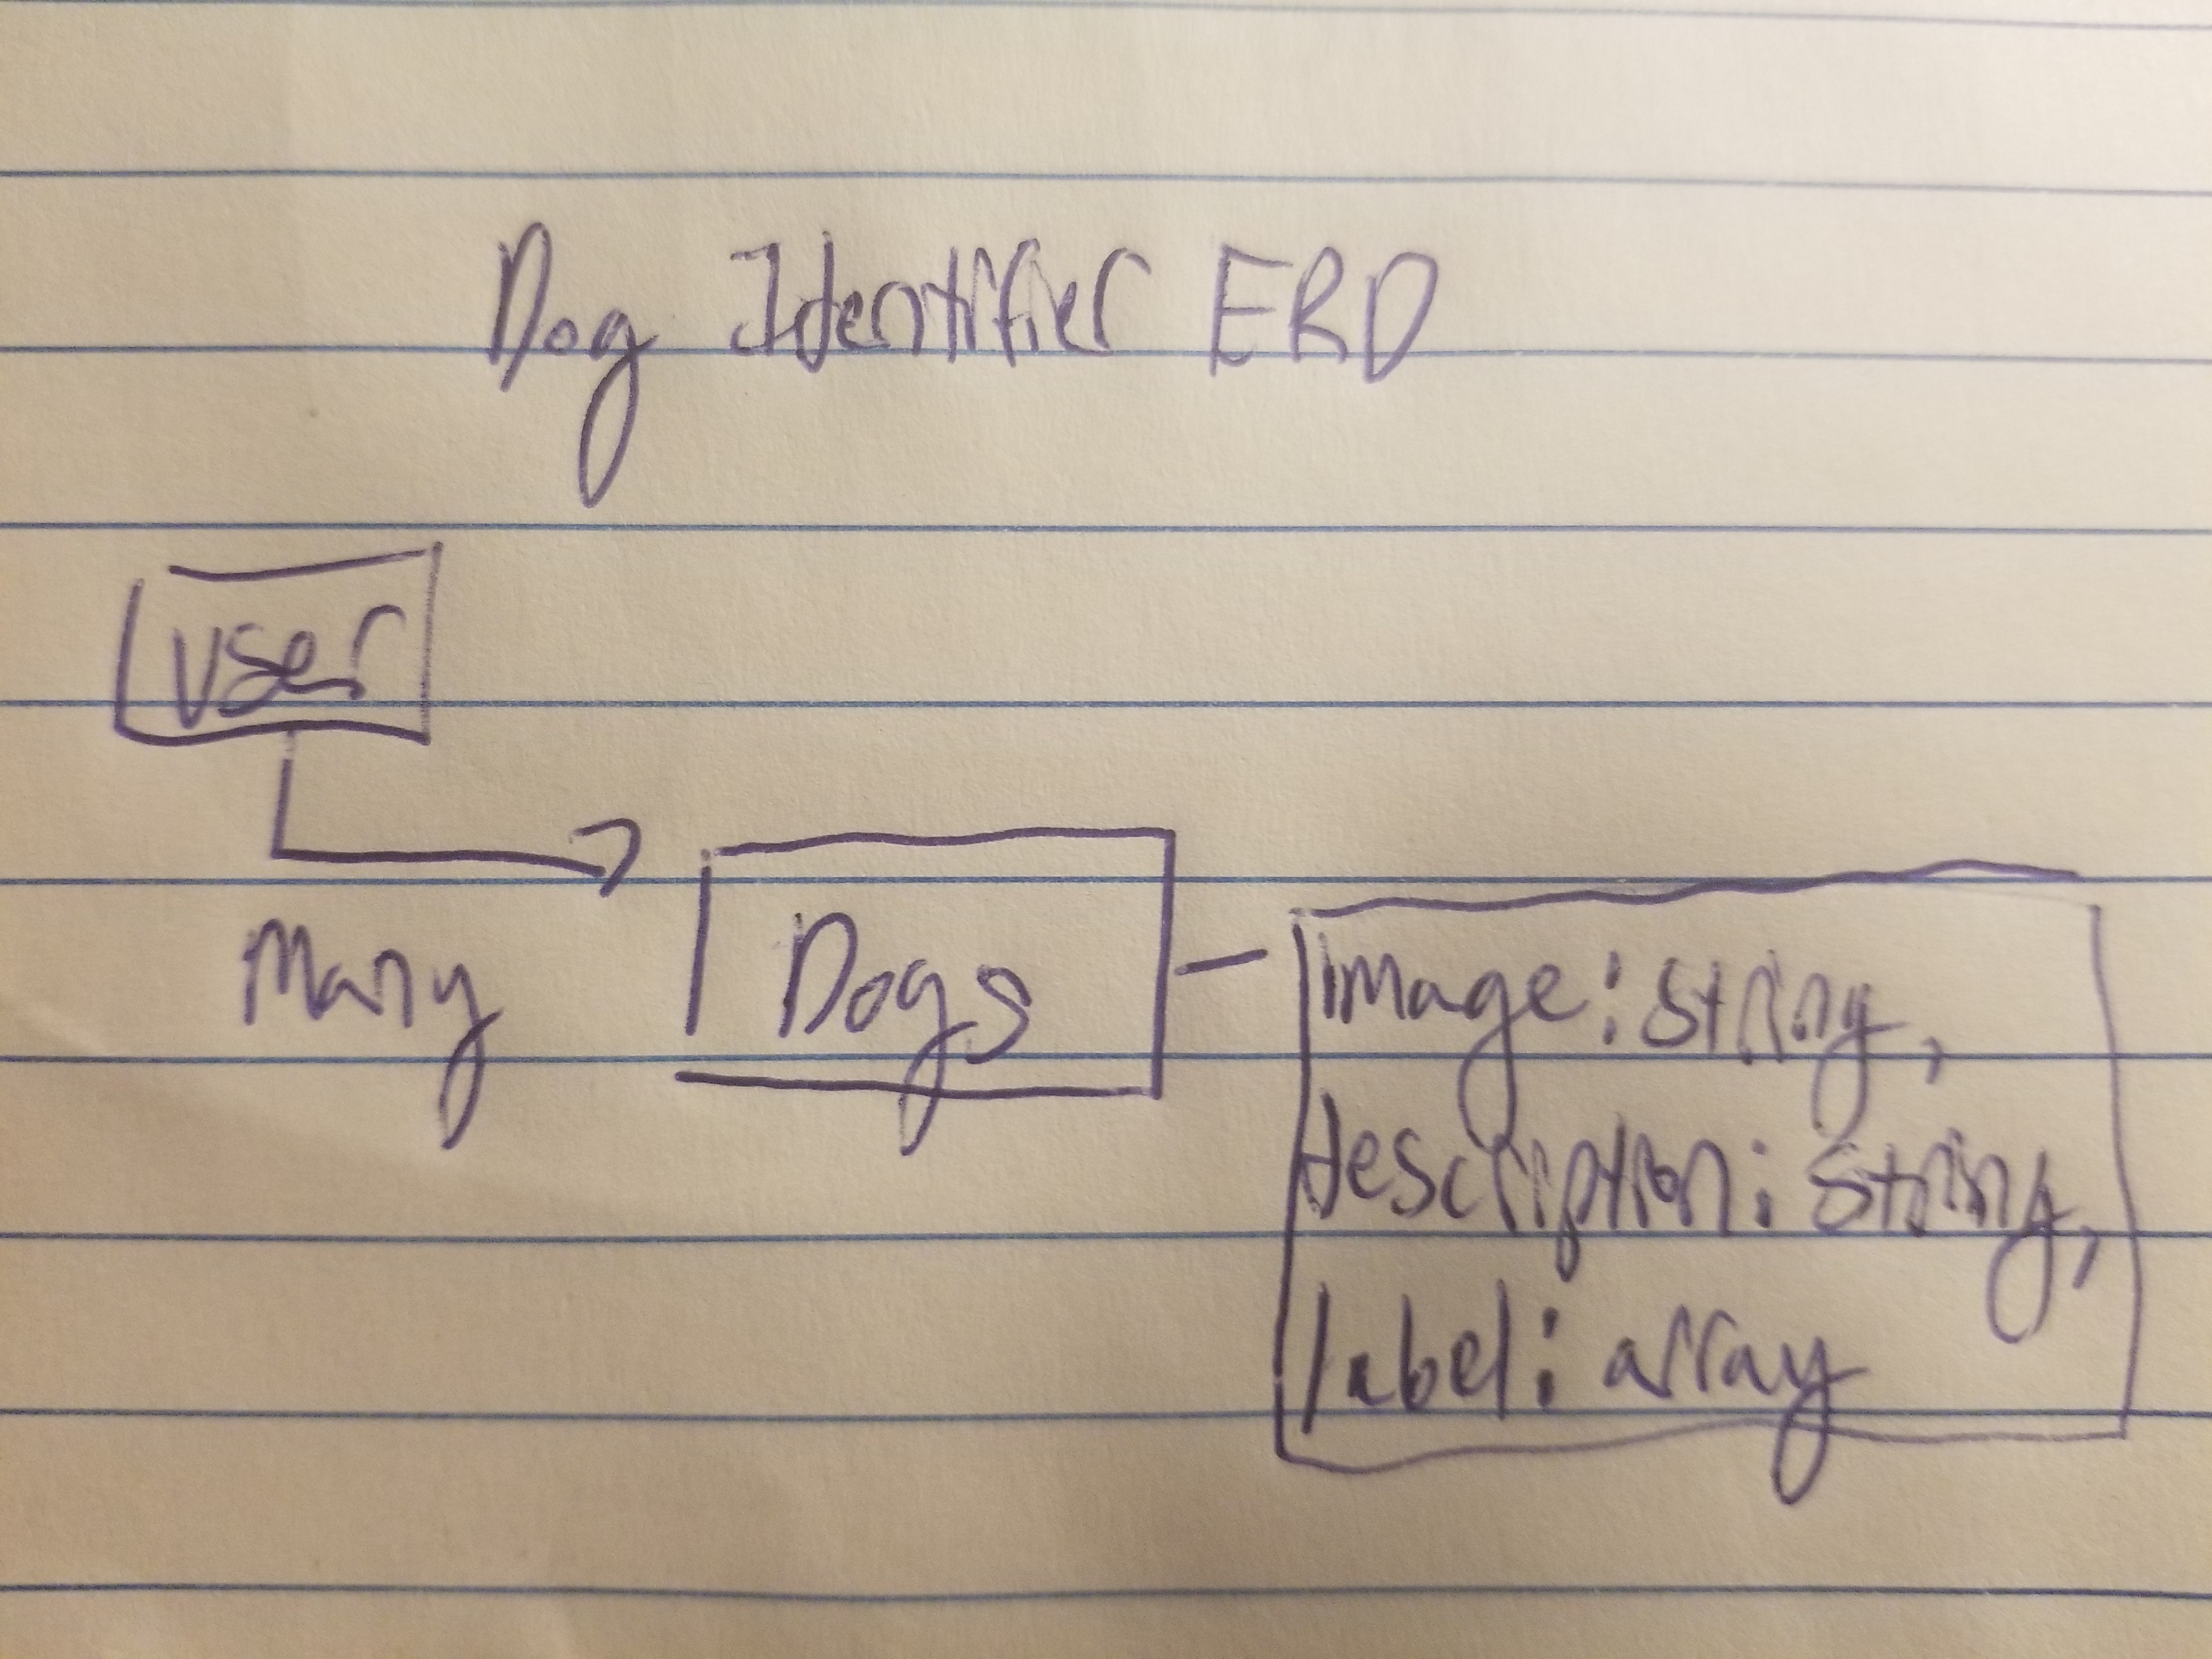 Dog Identifier ERD
User
Many
Dogs
image: string,
description: string,
label: array